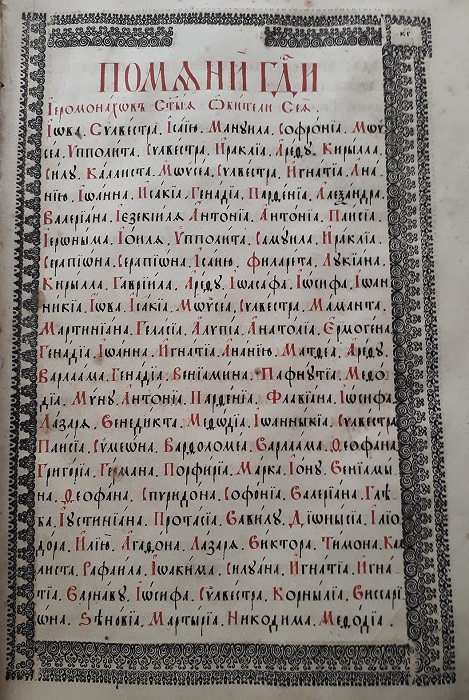 КГ
ПОМѦНИ́ ГД҇И
Іеромона́хѡвъ Ст҃ы́ѧ Ѻби́тели Сеѧ̀
І́ѡва . Сѷлве́стра . Іса́їю . Мануи́ла . Софро́нїа . Мѡѵ
се́а . Ѵпполи́та . Сѷлве́стра . Ира́клїа . Аре́ѳу . Кѷри́лла .
Си́лу . Калли́ста . Мѡѵсе́а . Сѷлве́стра . Игна́тїа . А́на
ні́ю . Іѡа́нна . Иса́кїа . Гена́дїа . Парѳе́нїа . Алеѯа́ндра .
Валерїа́на . Іезекі́илѧ . Анто́нїа . Анто́нїа . Паи́сїа .
Іерѡ́ныма . Іѡи́лѧ . Ѵпполи́та . Самуи́ла . Ира́клїа .
Серапїѡ́на . Серапїѡ́на . Іса́їю . Филаре́та . Лукїа́на .
Кѷри́лла . Гаврїи́ла . Аре́ѳу . Іѡаса́фа . Іѡ́сифа . Іѡан
ники́а . І́ѡва . Іса́кїа . Мѡѵсе́а . Сѷлве́стра . Мама́нта .
Мартинїа́на . Гела́сїа . Алѵ́пїа . Анато́лїа . Єрмоге́на .
Гена́дїа . Іѡа́нна . Игна́тїа . Ана́нїю . Матѳе́а . Аре́ѳу .
Варлаа́ма . Гена́дїа . Венїами́на . Пафну́тїа . Меѳо́
дїа . Ми́ну . Анто́нїа . Парѳе́нїа . Флавїа́на . Іѡ́сифа .
Ла́зарѧ . Венеди́кта . Меѳо́дїа . Іѡанны́кїа . Сѷлве́стра
Паи́сїа . Сѵмеѡ́на . Варѳоломе́а . Варлаа́ма . Ѳеофа́на .
Григо́рїа . Ге́рмана . Порфи́рїа . Ма́рка . Іѡ́ну . Венїамы́
на . Ѳеофа́на . Спѷридо́на . Софо́нїа . Валерїа́на . Глѣ́
ба . Іустинїа́на . Прота́сїа . Вави́лу . Дїѡны́сїа . Илїо
до́ра . Илїю̀ . Агаѳо́на . Ла́зарѧ . Ви́ктора . Ти́мона . Кал
ли́ста . Рафаи́ла . Іѡаки́ма . Силуа́на . Игна́тїа . Игна́
тїа . Варна́ву . Іѡ́сифа . Сѷлве́стра . Корны́лїа . Виссарї
ѡ́на . Зѣно́вїа . Марты́рїа . Никоди́ма . Меѳо́дїа .